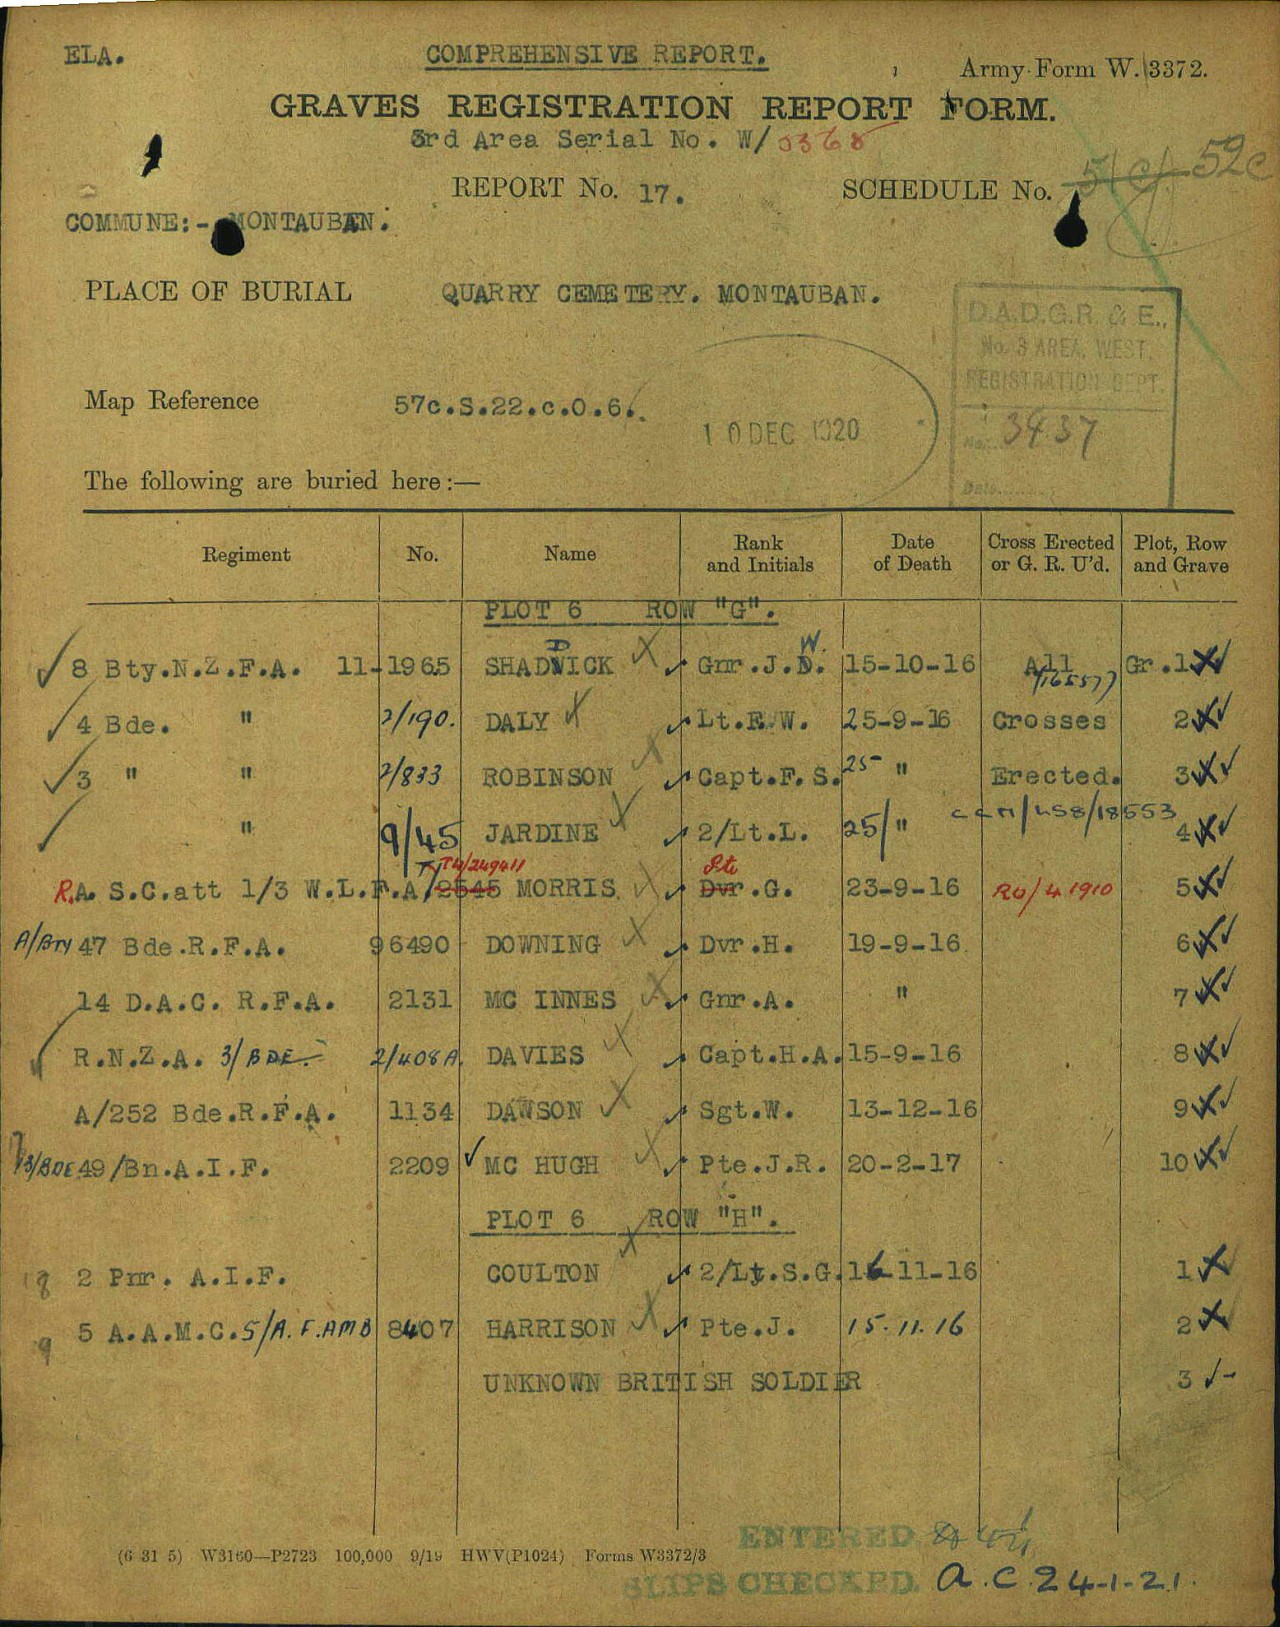 ELA.
COMPREHENSIVE REPORT.
Army Form W. 3372.
GRAVES REGISTRATION REPORT FORM.
3rd Area Serial No. W/ 0368
REPORT No. 17.
SCHEDULE No. 51C 52c
COMMUNE:- MONTAUBAN.
PLACE OF BURIAL QUARRY CEMETERY. MONTAUBAN.
D.A.D.G.R. & E.,
No. 3 AREA, WEST,
REGISTRATION DEPT.
No. 3437
Date
Map Reference 57c.S.22.c.0.6.
10 DEC 1920
The following are buried here :—
Regiment No. Name Rank and Initials Date of Death Cross Erected or G. R. U'd. Plot, Row and Grave
PLOT 6 ROW "G".
8 Bty.N.Z.F.A. 11-1965 SHADWICK D Gnr.J.D. W. 15-10-16 All Gr.1
4 Bde. " 2/190. DALY Lt.E.W. 25-9-16 Crosses 2
3 " " 2/833 ROBINSON Capt.F.S. 25 " Erected. 3
" 9/45 JARDINE 2/Lt.L. 25/" CCM/458/18553 4
R.A.S.C.att 1/3 W.L.F.A. T/2545 T4/249411 MORRIS Dvr.G. Pte 23-9-16 RO/4 1910 5
A/Bty 47 Bde.R.F.A. 96490 DOWNING Dvr.H. 19-9-16 6
14 D.A.C. R.F.A. 2131 MC INNES Gnr.A. " 7
R.N.Z.A. 3/BDE. 2/408A. DAVIES Capt.H.A. 15-9-16 8
A/252 Bde.R.F.A. 1134 DAWSON Sgt.W. 13-12-16 9
13/BDE 49/Bn.A.I.F. 2209 MC HUGH Pte.J.R. 20-2-17 10
PLOT 6 ROW "H".
2 Pnr. A.I.F. COULTON 2/Lt.S.G. 16-11-16 1
5 A.A.M.C. 5/A.F.AMB 8407 HARRISON Pte.J. 15.11.16 2
UNKNOWN BRITISH SOLDIER 3
(6 31 5) W3160—P2723 100,000 9/19 HWV(P1024) Forms W3372/3
ENTERED
SLIPS CHECKED. A.C. 24-1-21.